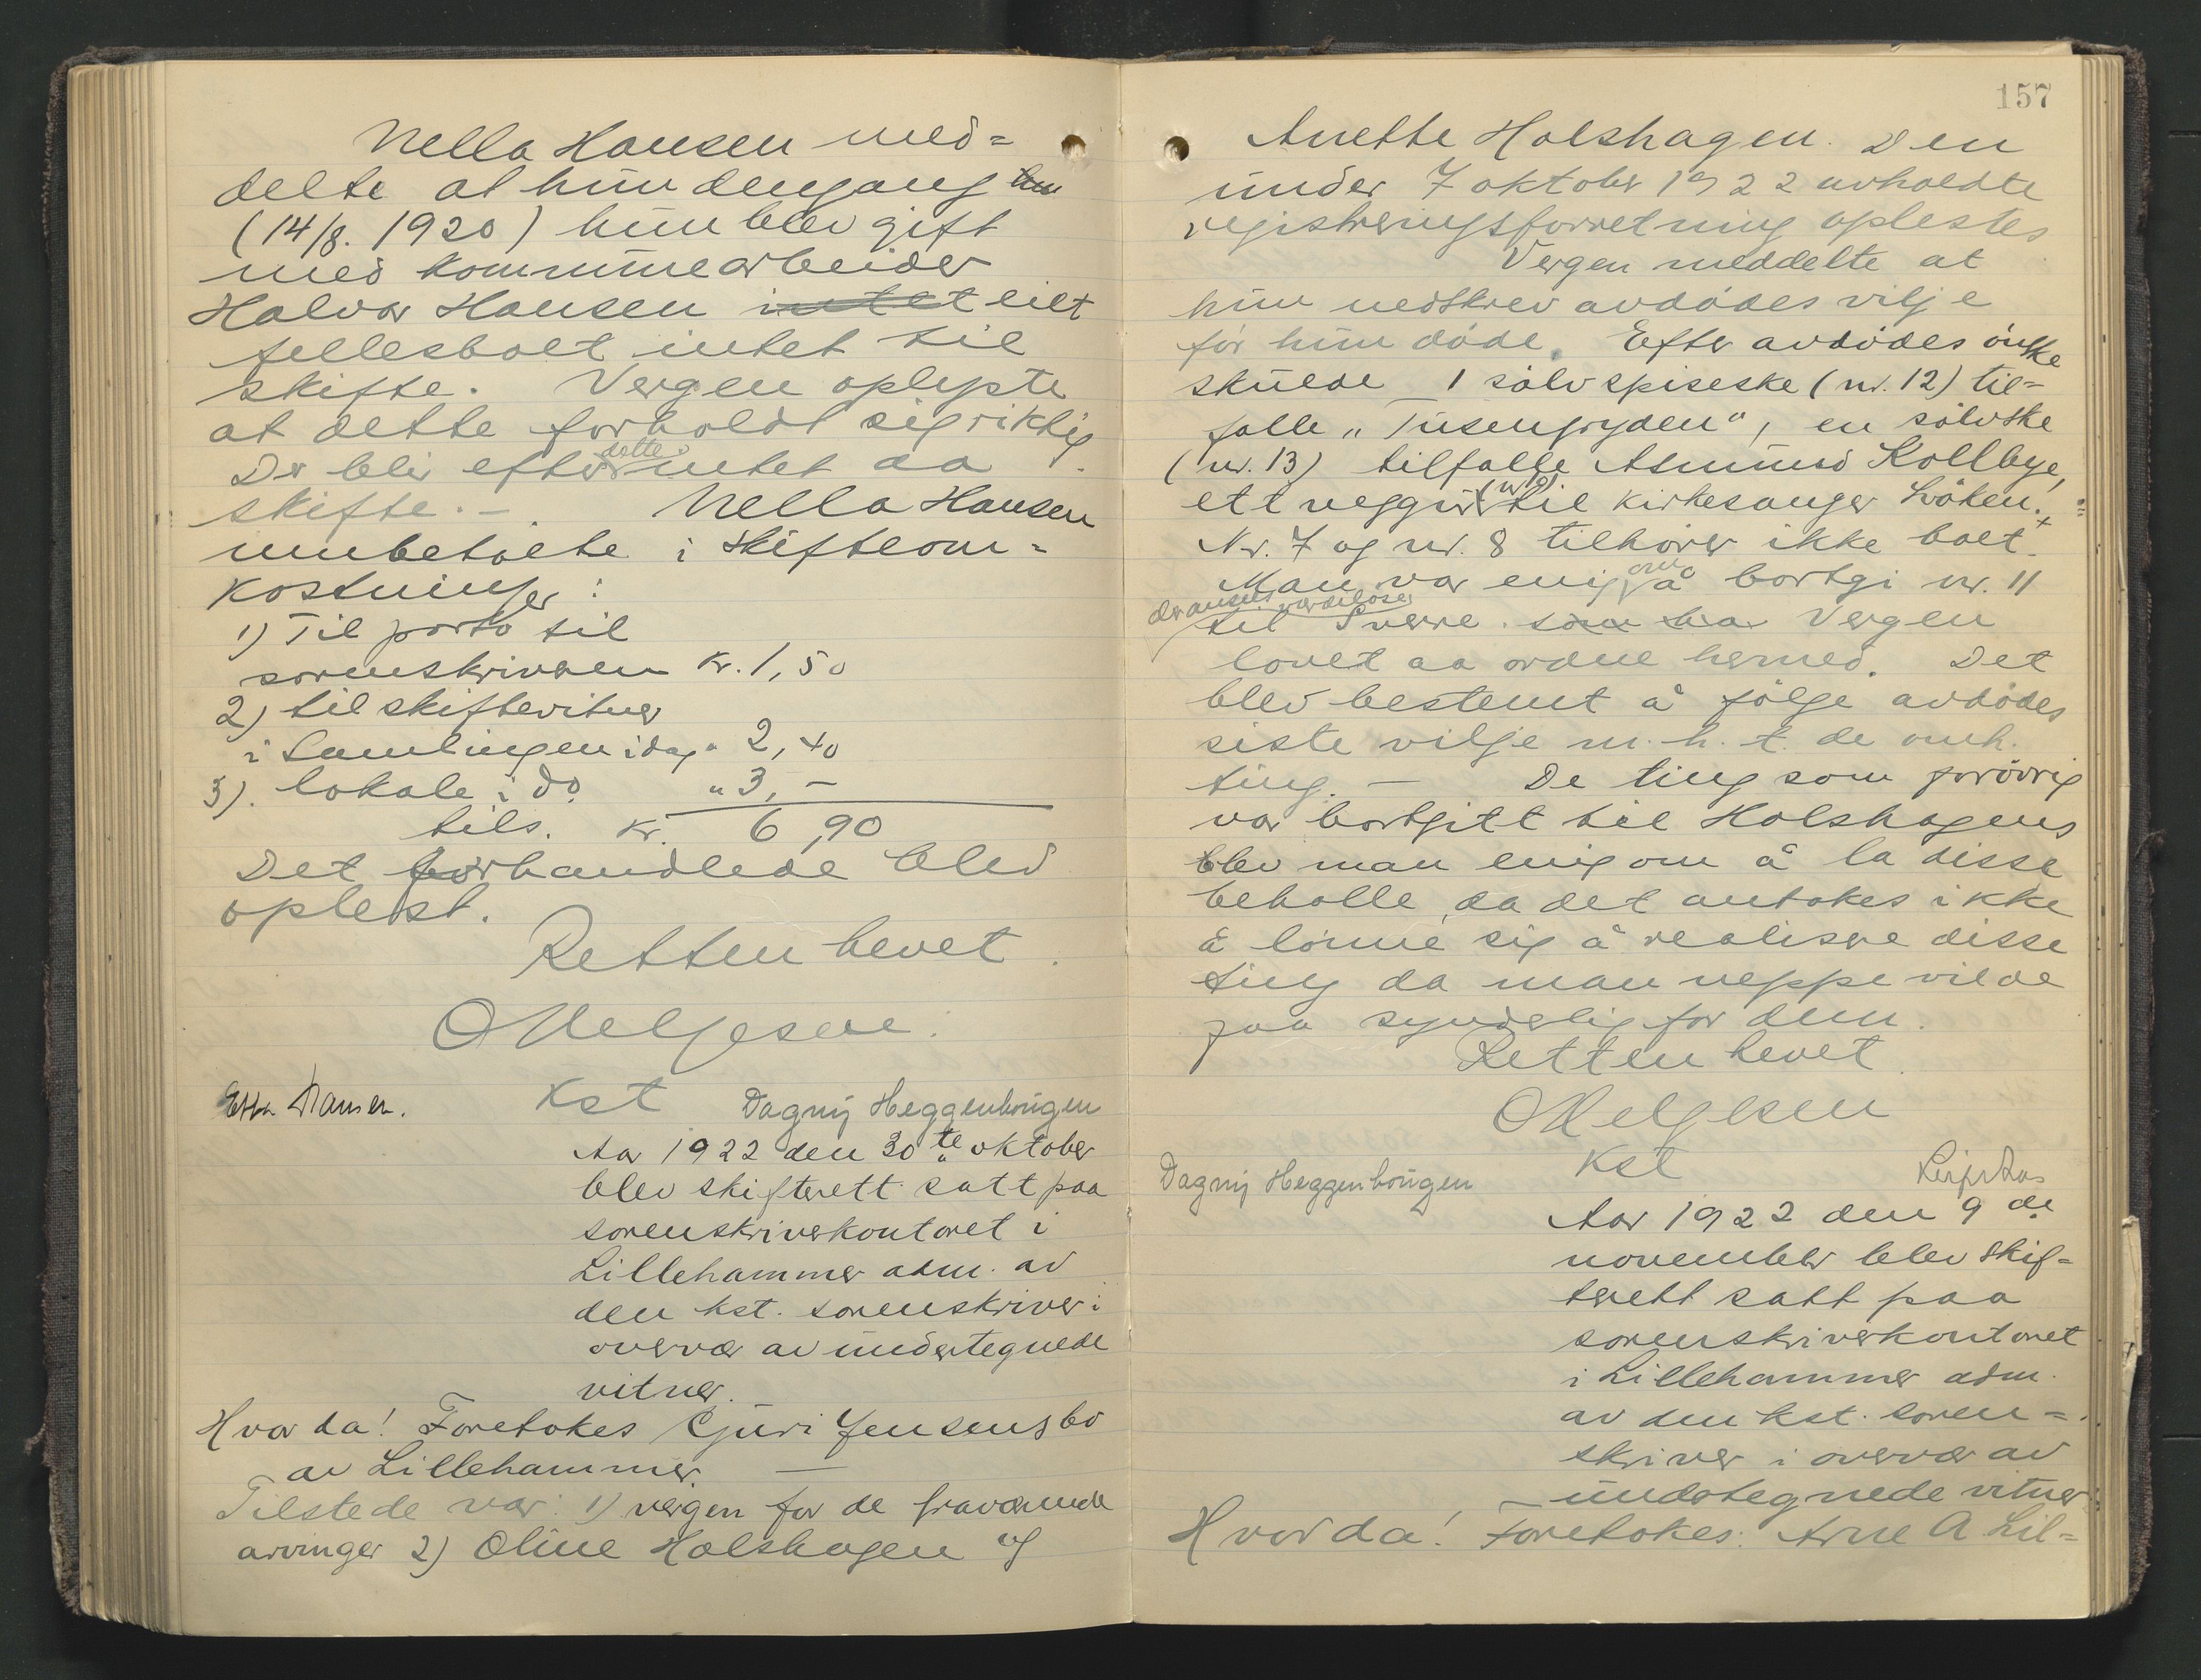 Nella Hansen med=
delte at hun dengang hun
(14/8. 1920) hun blev gift
med kommunearbeider
Halvor Hansen intet eilt
fellesboet intet til
skifte. Vergen oplyste
at dette forholdt sig riktig.
dette
Der blir efter intet aa
skifte. – Nella Hansen
innbetalte i skifteom=
kostninger:
1) Til porto til
sorenskriveren kr. 1,50
2) til skiftevitner
i Samlingen idag " 2,40
3). lokale i do. " 3, –
tils. kr. 6,90
Det forhandlede blev
oplest.
Retten hevet.
O Helgesen.
Kst Dagny Heggenhougen
Hansen.
Aar 1922 den 30te oktober
blev skifterett satt paa
sorenskriverkontoret i
Lillehammer adm. av
den kst. sorenskriver i
overvær av undertegnede
vitner.
Hvor da! Foretokes Guri Jensens bo
av Lillehammer. —
Tilstede var: 1) vergen for de fraværende
arvinger 2) Oline Holshagen og
157
Anette Holshagen. Den
under 7 oktober 1922 avholdte
registreringsforretning oplestes
Vergen meddelte at
hun nedskrev avdødes vilje
før hun døde. Efter avdødes ønske
skulde 1 sølv spiseske (nr. 12) til=
falle „Tusengryden", en sølvske
(nr. 13) tilfalle Asmund Kollbye,
ett veggur til kirkesanger Løken.
Nr. 7 og nr. 8 tilhører ikke boet.
om
Man var enig å bortgi nr. 11
der ansees verdiløse
til Sverre. som hra Vergen
lovet aa ordne hermed. Det
blev bestemt å følge avdødes
siste vilje m. h. t. de omh.
ting. — De ting som forøvrig
var bortgitt til Holshagens
blev man enig om å la disse
beholle, da det antokes ikke
å lønne sig å realisere disse
ting da man neppe vilde
faa synderlig for dem.
Retten hevet
O Helgesen
Kst
Dagny Heggenhougen
Aar 1922 den 9de
november blev skif=
terett satt paa
sorenskriverkontoret
i Lillehammer adm.
av den kst. soren=
skriver i overvær av
undertegnede vitner
Hvor da! Foretokes: Arne A Lil=